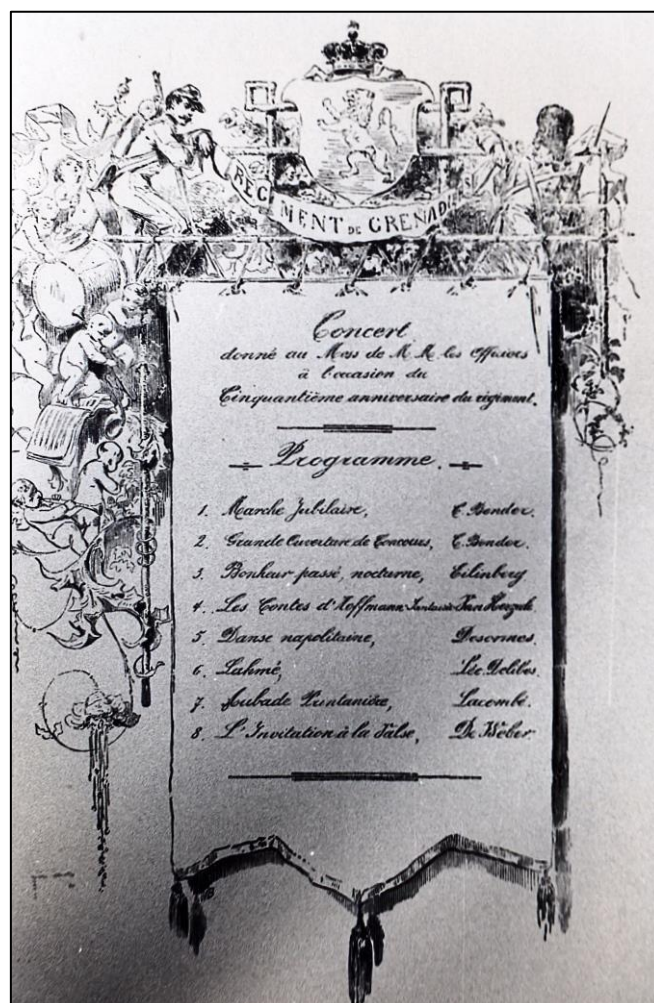 REGIMENT DE GRENADIE
Concert
donné au Mess de M.M. les Officiers
à l'occasion du
Cinquantième anniversaire du régiment.
Programme.
1. Marche Jubilaire, C. Bender.
2. Grande Ouverture de Concours, C. Bender.
3. Bonheur passé, nocturne, Eilenberg
4. Les Contes d'Hoffmann Fantaisie Van Herzele
5. Danse napolitaine, Desormes.
6. Lakmé, Léo Delibes.
7. Aubade Printanière, Lacombe.
8. L'Invitation à la Valse, De Wéber.